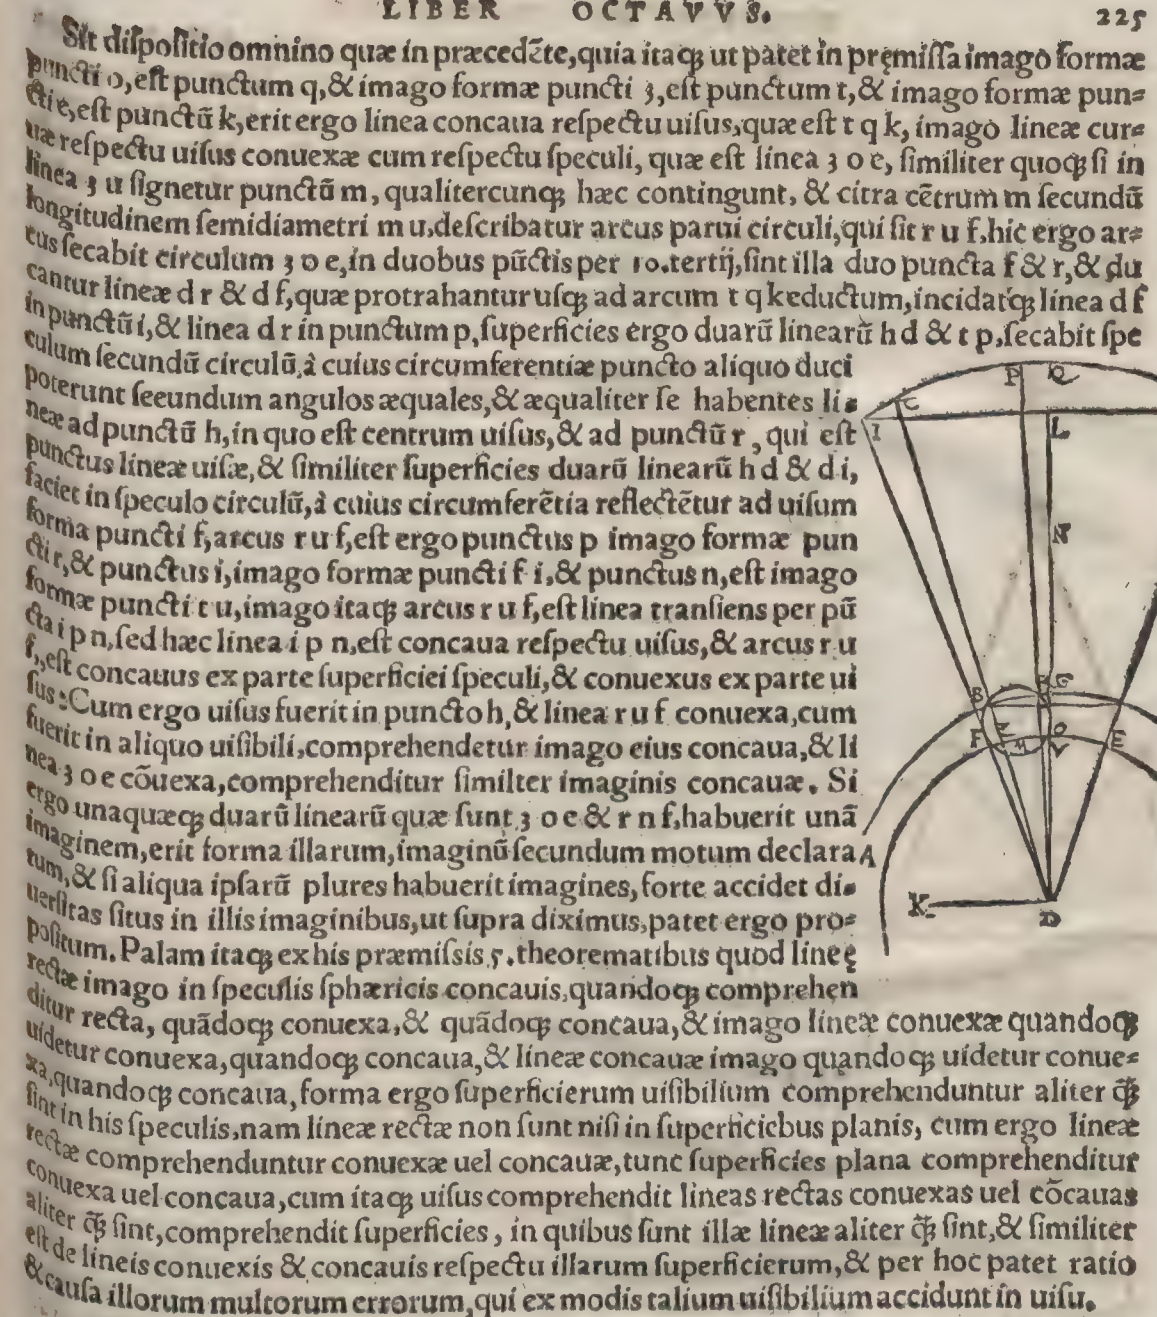 LIBER OCTAVVS. 225
Sit dispositio omnino quæ in præcedẽte, quia itaqꝫ ut patet in pręmissa imago formæ
puncti o, est punctum q, & imago formæ puncti ꝫ, est punctum t, & imago formæ pun⸗
cti e, est punctũ k, erit ergo linea concaua respectu uisus, quæ est t q k, imago lineæ cur⸗
uæ respectu uisus conuexæ cum respectu speculi, quæ est linea ꝫ o e, similiter quoqꝫ si in
linea ꝫ u signetur punctũ m, qualitercunqꝫ hæc contingunt, & citra cẽtrum m secundũ
longitudinem semidiametri m u, describatur arcus parui circuli, qui sit r u f, hic ergo ar⸗
cus secabit circulum ꝫ o e, in duobus pũctis per 10. tertij, sint illa duo puncta f & r, & du
cantur lineæ d r & d f, quæ protrahantur usqꝫ ad arcum t q k eductum, incidatqꝫ linea d f
in punctũ i, & linea d r in punctum p, superficies ergo duarũ linearũ h d & t p, secabit spe
culum secundũ circulũ, à cuius circumferentiæ puncto aliquo duci
poterunt seeundum angulos æquales, & æqualiter se habentes li⸗
neæ ad punctũ h, in quo est centrum uisus, & ad punctũ r, qui est
punctus lineæ uisæ, & similiter superficies duarũ linearũ h d & d i,
faciet in speculo circulũ, à cuius circumferẽtia reflectẽtur ad uisum
forma puncti f, arcus r u f, est ergo punctus p imago formæ pun
cti r, & punctus i, imago formæ puncti f i, & punctus n, est imago
formæ puncti t u, imago itaqꝫ arcus r u f, est linea transiens per pũ
cta i p n, sed hæc linea i p n, est concaua respectu uisus, & arcus r u
f, est concauus ex parte superficiei speculi, & conuexus ex parte ui
sus: Cum ergo uisus fuerit in puncto h, & linea r u f conuexa, cum
fuerit in aliquo uisibili, comprehendetur imago eius concaua, & li
nea ꝫ o e cõuexa, comprehenditur similter imaginis concauæ. Si
ergo unaquæqꝫ duarũ linearũ quæ sunt ꝫ o e & r n f, habuerit unã
imaginem, erit forma illarum, imaginũ secundum motum declara
tum, & si aliqua ipsarũ plures habuerit imagines, forte accidet di⸗
uersitas situs in illis imaginibus, ut supra diximus, patet ergo pro⸗
positum. Palam itaqꝫ ex his præmissis 5. theorematibus quod lineę
rectæ imago in speculis sphæricis concauis, quandoqꝫ comprehen
ditur recta, quãdoqꝫ conuexa, & quãdoqꝫ concaua, & imago lineæ conuexæ quandoqꝫ
uidetur conuexa, quandoqꝫ concaua, & lineæ concauæ imago quandoqꝫ uidetur conue⸗
xa, quandoqꝫ concaua, forma ergo superficierum uisibilium comprehenduntur aliter q̃ꝫ
sint in his speculis, nam lineæ rectæ non sunt nisi in superficiebus planis, cum ergo lineæ
rectæ comprehenduntur conuexæ uel concauæ, tunc superficies plana comprehenditur
conuexa uel concaua, cum itaqꝫ uisus comprehendit lineas rectas conuexas uel cõcauas
aliter q̃ꝫ sint, comprehendit superficies, in quibus sunt illæ lineæ aliter q̃ꝫ sint, & similiter
est de lineis conuexis & concauis respectu illarum superficierum, & per hoc patet ratio
& causa illorum multorum errorum, qui ex modis talium uisibilium accidunt in uisu.
P Q
T
I L
N
B G
Z O
F M V E
A
K D